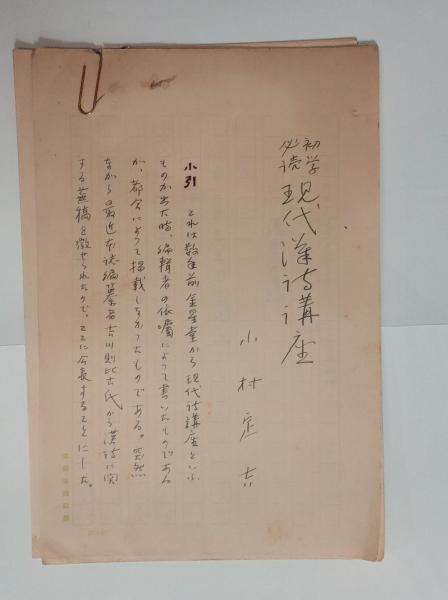 初学
必読
現代漢詩講座
小村定吉
小引
これは数年前金星堂から現代詩講座といふ
ものが出た時、編輯者の依嘱によつて書いたものである
が、都合によつて掲載しなかつたものである。突然
ながら最近本誌編輯者吉川則比古氏から漢詩に関
する蕪稿を徴せられたので、ここに公表することにした。